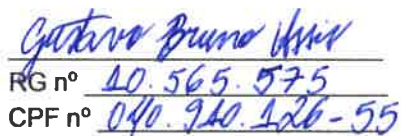 Gustavo Bruno Assis
RG nº 10.565.575
CPF nº 040.940.126-55